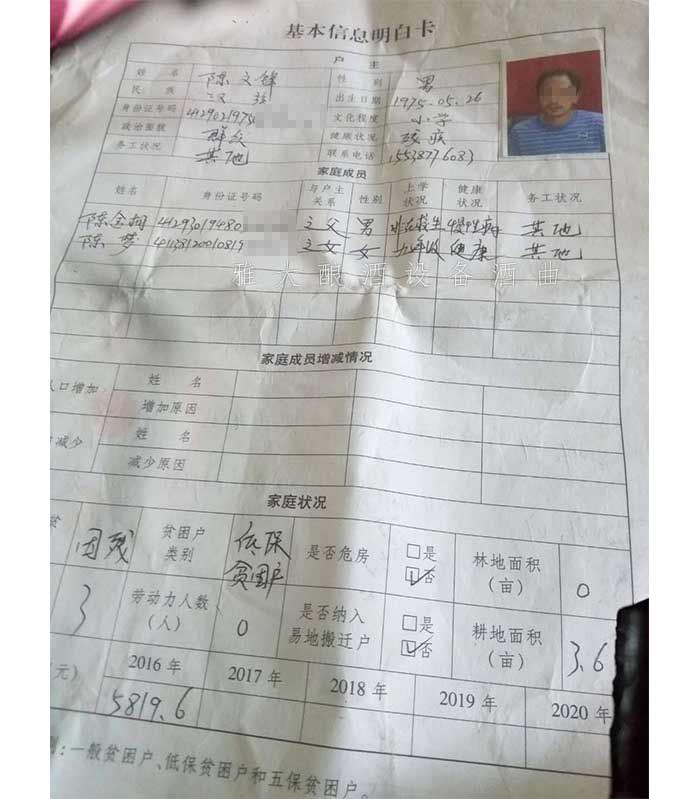 基本信息明白卡
户 主
姓 名 陈文锋 性 别 男
民 族 汉族 出生日期 1975.05.26
身份证号码 41292197501 文化程度 小学
政治面貌 群众 健康状况 残疾
务工状况 其他 联系电话 15538776083
家庭成员
姓名 身份证号码 与户主关系 性别 上学状况 健康状况 务工状况
41293019480 之父 男 非在校生 慢性病 其他
陈梦 41138120010819 之女 女 九年级 健康 其他
雅大酿酒设备酒曲
家庭成员增减情况
人口增加 姓 名
增加原因
减少 姓 名
减少原因
家庭状况
贫 因残 贫困户类别 低保贫困户 是否危房 □是 ☑否 林地面积(亩) 0
3 劳动力人数(人) 0 是否纳入易地搬迁户 □是 ☑否 耕地面积(亩) 3.6
元) 2016年 2017年 2018年 2019年 2020年
5819.6
别:一般贫困户、低保贫困户和五保贫困户。